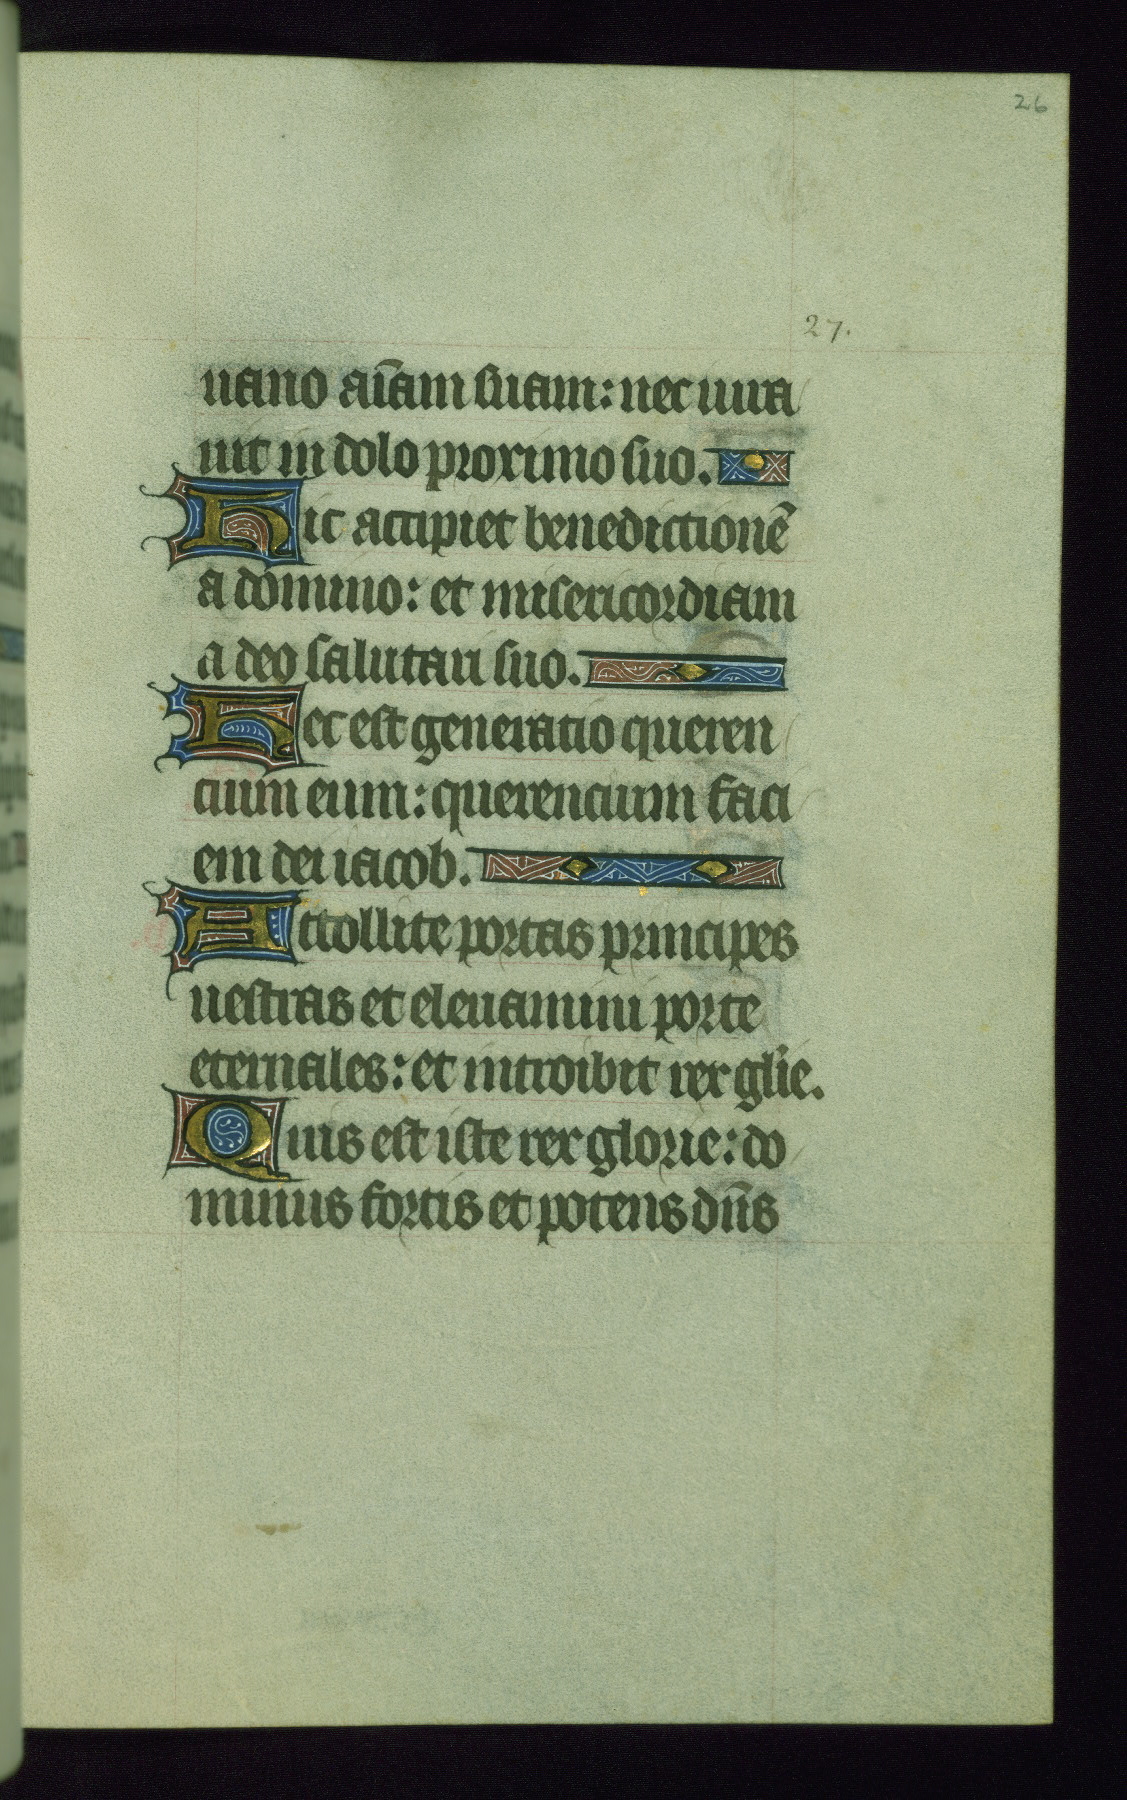 26
27.
uano aīam suam: nec iura
uit in dolo proximo suo.
Hic accipiet benedictionē
a domino: et misericordiam
a deo salutari suo.
Hec est generatio queren
cium eum: querencium faci
em dei iacob.
Attollite portas principes
uestras et eleuamini porte
eternales: et introibit rex gl̄ie.
Quis est iste rex glorie: do
minus fortis et potens dn̄s